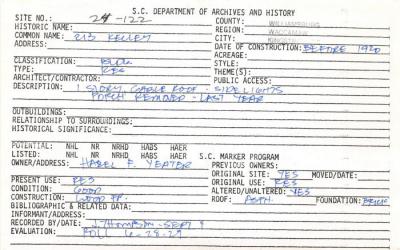 S.C. DEPARTMENT OF ARCHIVES AND HISTORY
SITE NO.: 24-122 COUNTY: WILLIAMSBURG
HISTORIC NAME: REGION: WACCAMAW
COMMON NAME: 213 KELLEY CITY: KINGSTREE
ADDRESS: DATE OF CONSTRUCTION: BEFORE 1920
ACREAGE:
CLASSIFICATION: BLDG STYLE:
TYPE: RES THEME(S):
ARCHITECT/CONTRACTOR: PUBLIC ACCESS:
DESCRIPTION: 1 STORY, GABLE ROOF - SIDELIGHTS
PORCH REMOVED - LAST YEAR
OUTBUILDINGS:
RELATIONSHIP TO SURROUNDINGS:
HISTORICAL SIGNIFICANCE:
POTENTIAL: NHL NR NRHD HABS HAER
LISTED: NHL NR NRHD HABS HAER S.C. MARKER PROGRAM
OWNER/ADDRESS: HAZEL F. YEATER PREVIOUS OWNERS:
ORIGINAL SITE: YES MOVED/DATE:
PRESENT USE: RES ORIGINAL USE: RES
CONDITION: GOOD ALTERED/UNALTERED: YES
CONSTRUCTION: WOOD FR. ROOF: ASPH. FOUNDATION: BRICK
BIBLIOGRAPHIC & RELATED DATA:
INFORMANT/ADDRESS:
RECORDED BY/DATE: J. THOMPSON - SEPT
EVALUATION: ROLL 6-28-29